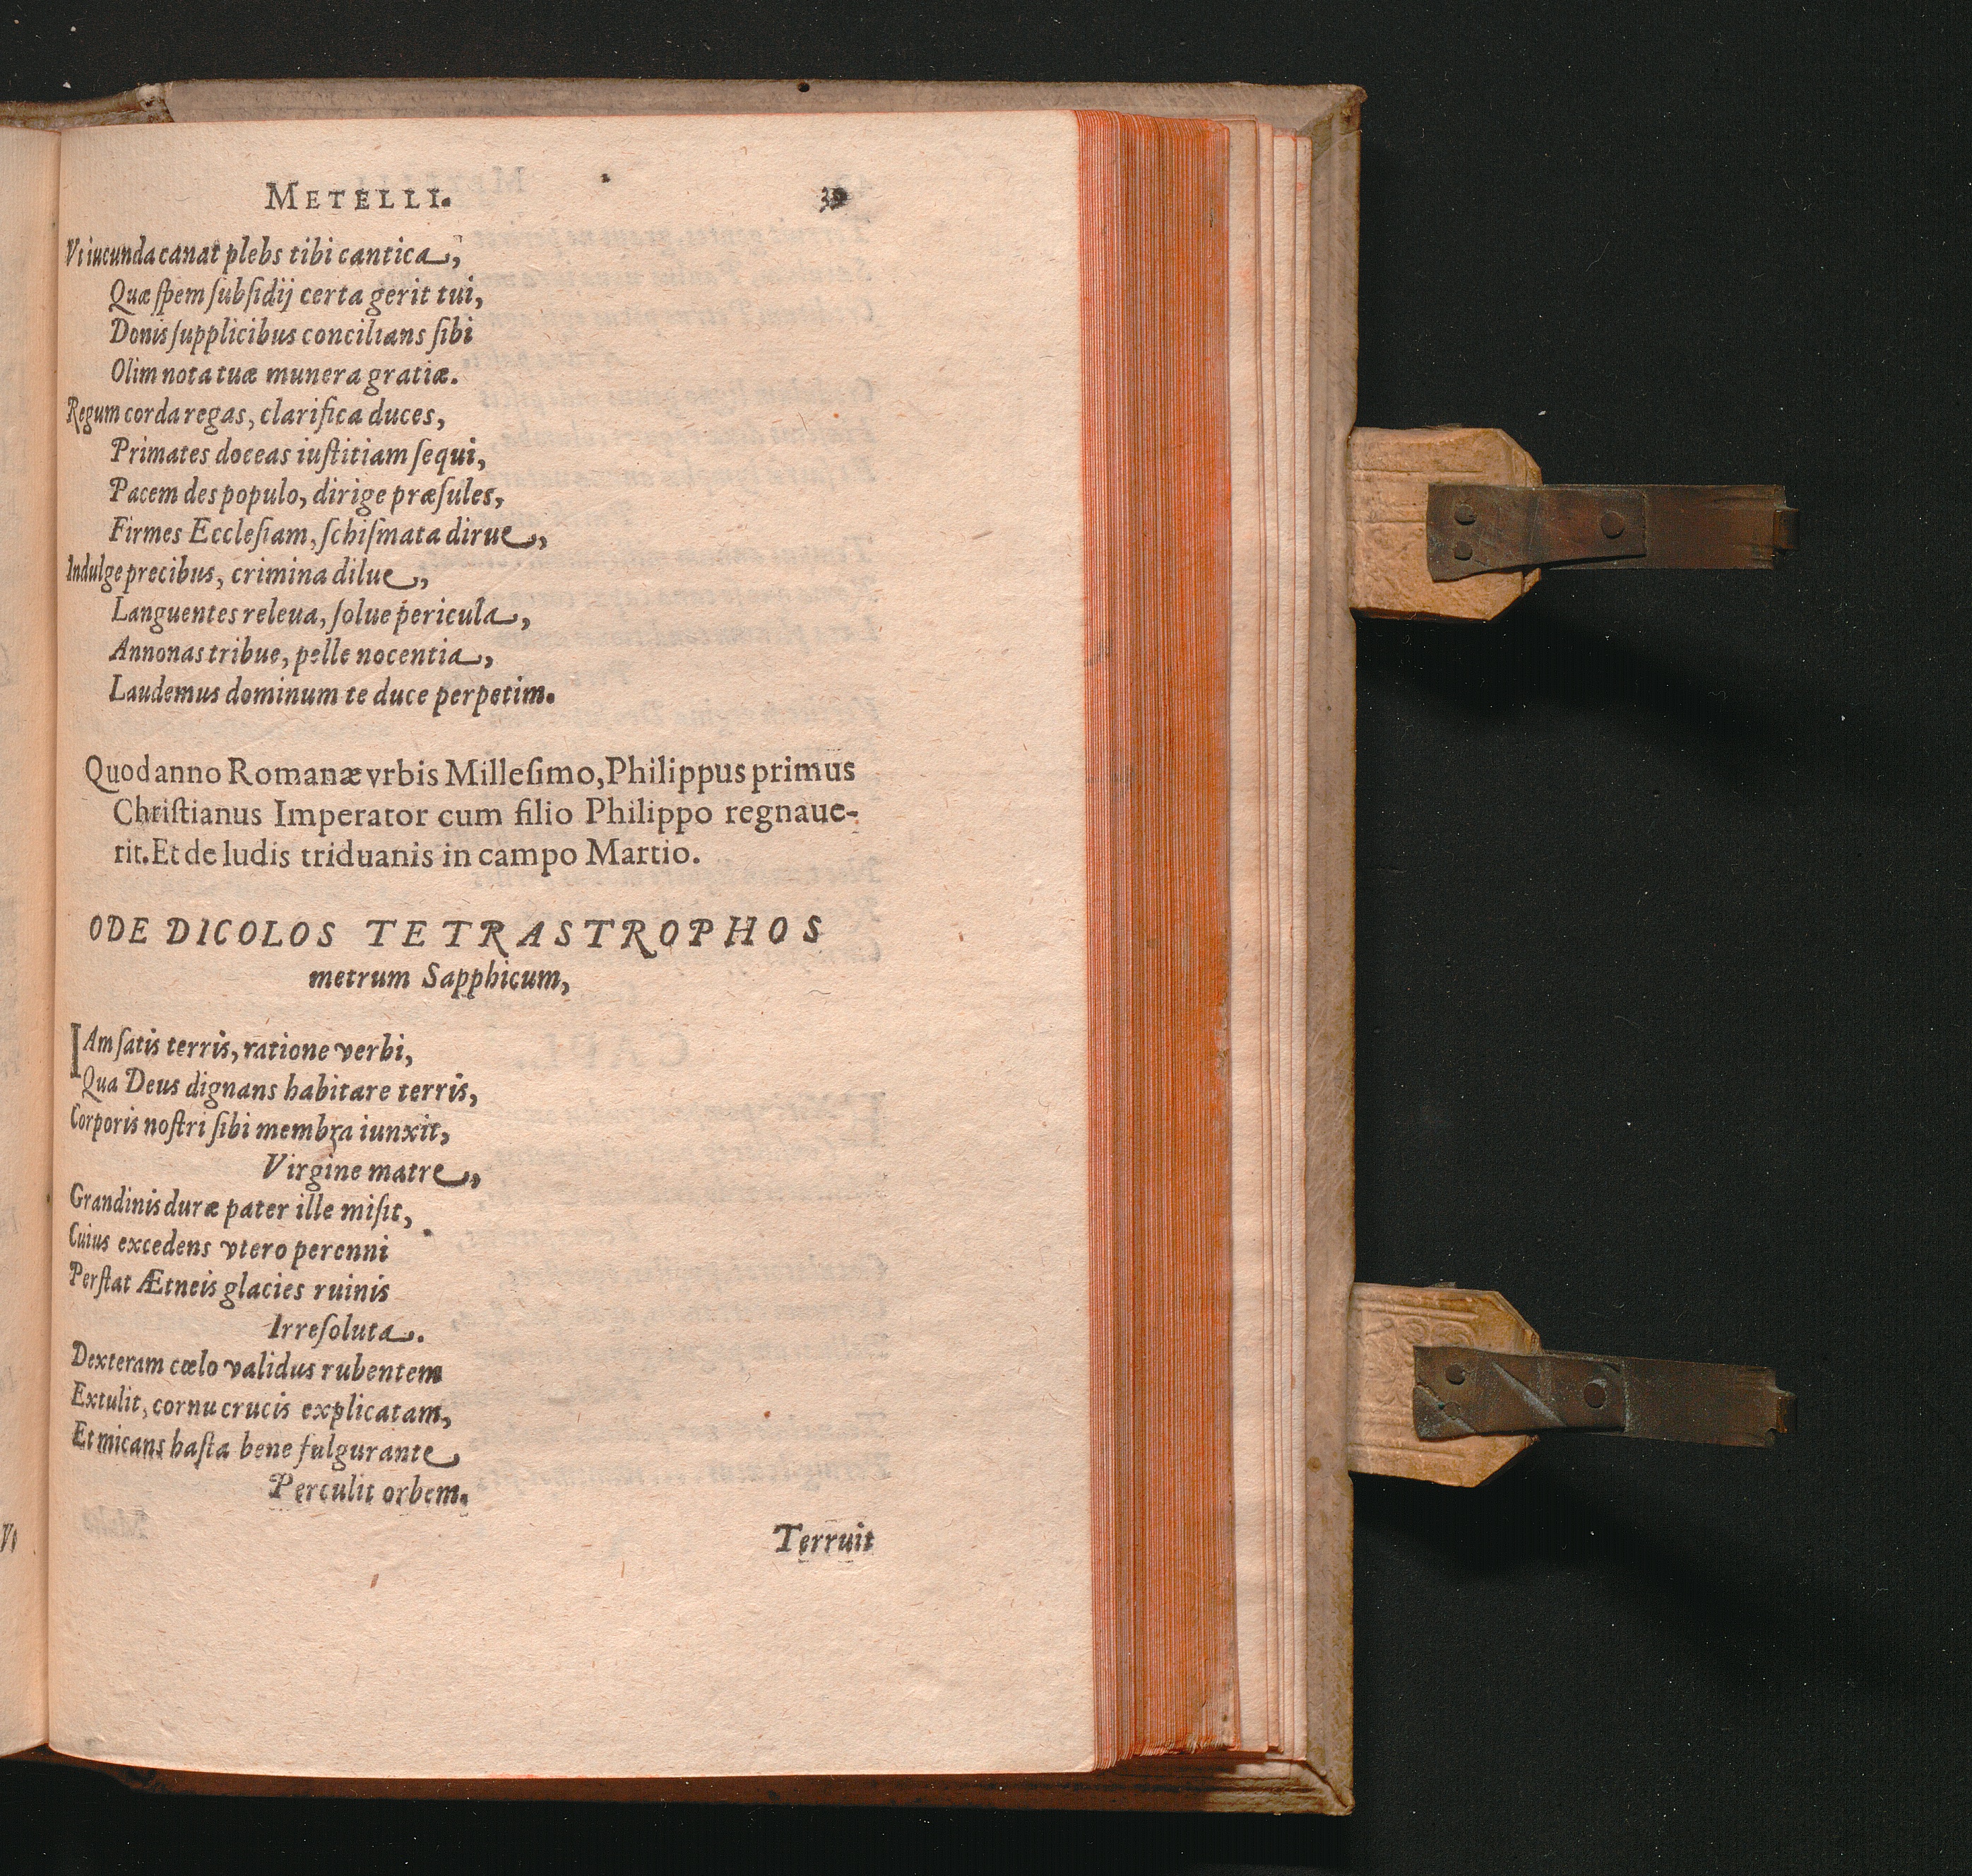 METELLI.
Vt iucunda canat plebs tibi cantica,
Quæ spem subsidij certa gerit tui,
Donis supplicibus concilians sibi
Olim nota tuæ munera gratiæ.
Regum corda regas, clarifica duces,
Primates doceas iustitiam sequi,
Pacem des populo, dirige præsules,
Firmes Ecclesiam, schismata dirue,
Indulge precibus, crimina dilue,
Languentes releua, solue pericula,
Annonas tribue, pelle nocentia,
Laudemus dominum te duce perpetim.
Quod anno Romanæ vrbis Millesimo, Philippus primus
Christianus Imperator cum filio Philippo regnaue-
rit. Et de ludis triduanis in campo Martio.
ODE DICOLOS TETRASTROPHOS
metrum Sapphicum,
IAm satis terris, ratione verbi,
Qua Deus dignans habitare terris,
Corporis nostri sibi membra iunxit,
Virgine matre,
Grandinis duræ pater ille misit,
Cuius excedens vtero perenni
Perstat Ætneis glacies ruinis
Irresoluta.
Dexteram cœlo validus rubentem
Extulit, cornu crucis explicatam,
Et micans hasta bene fulgurante
Perculit orbem.
Terruit